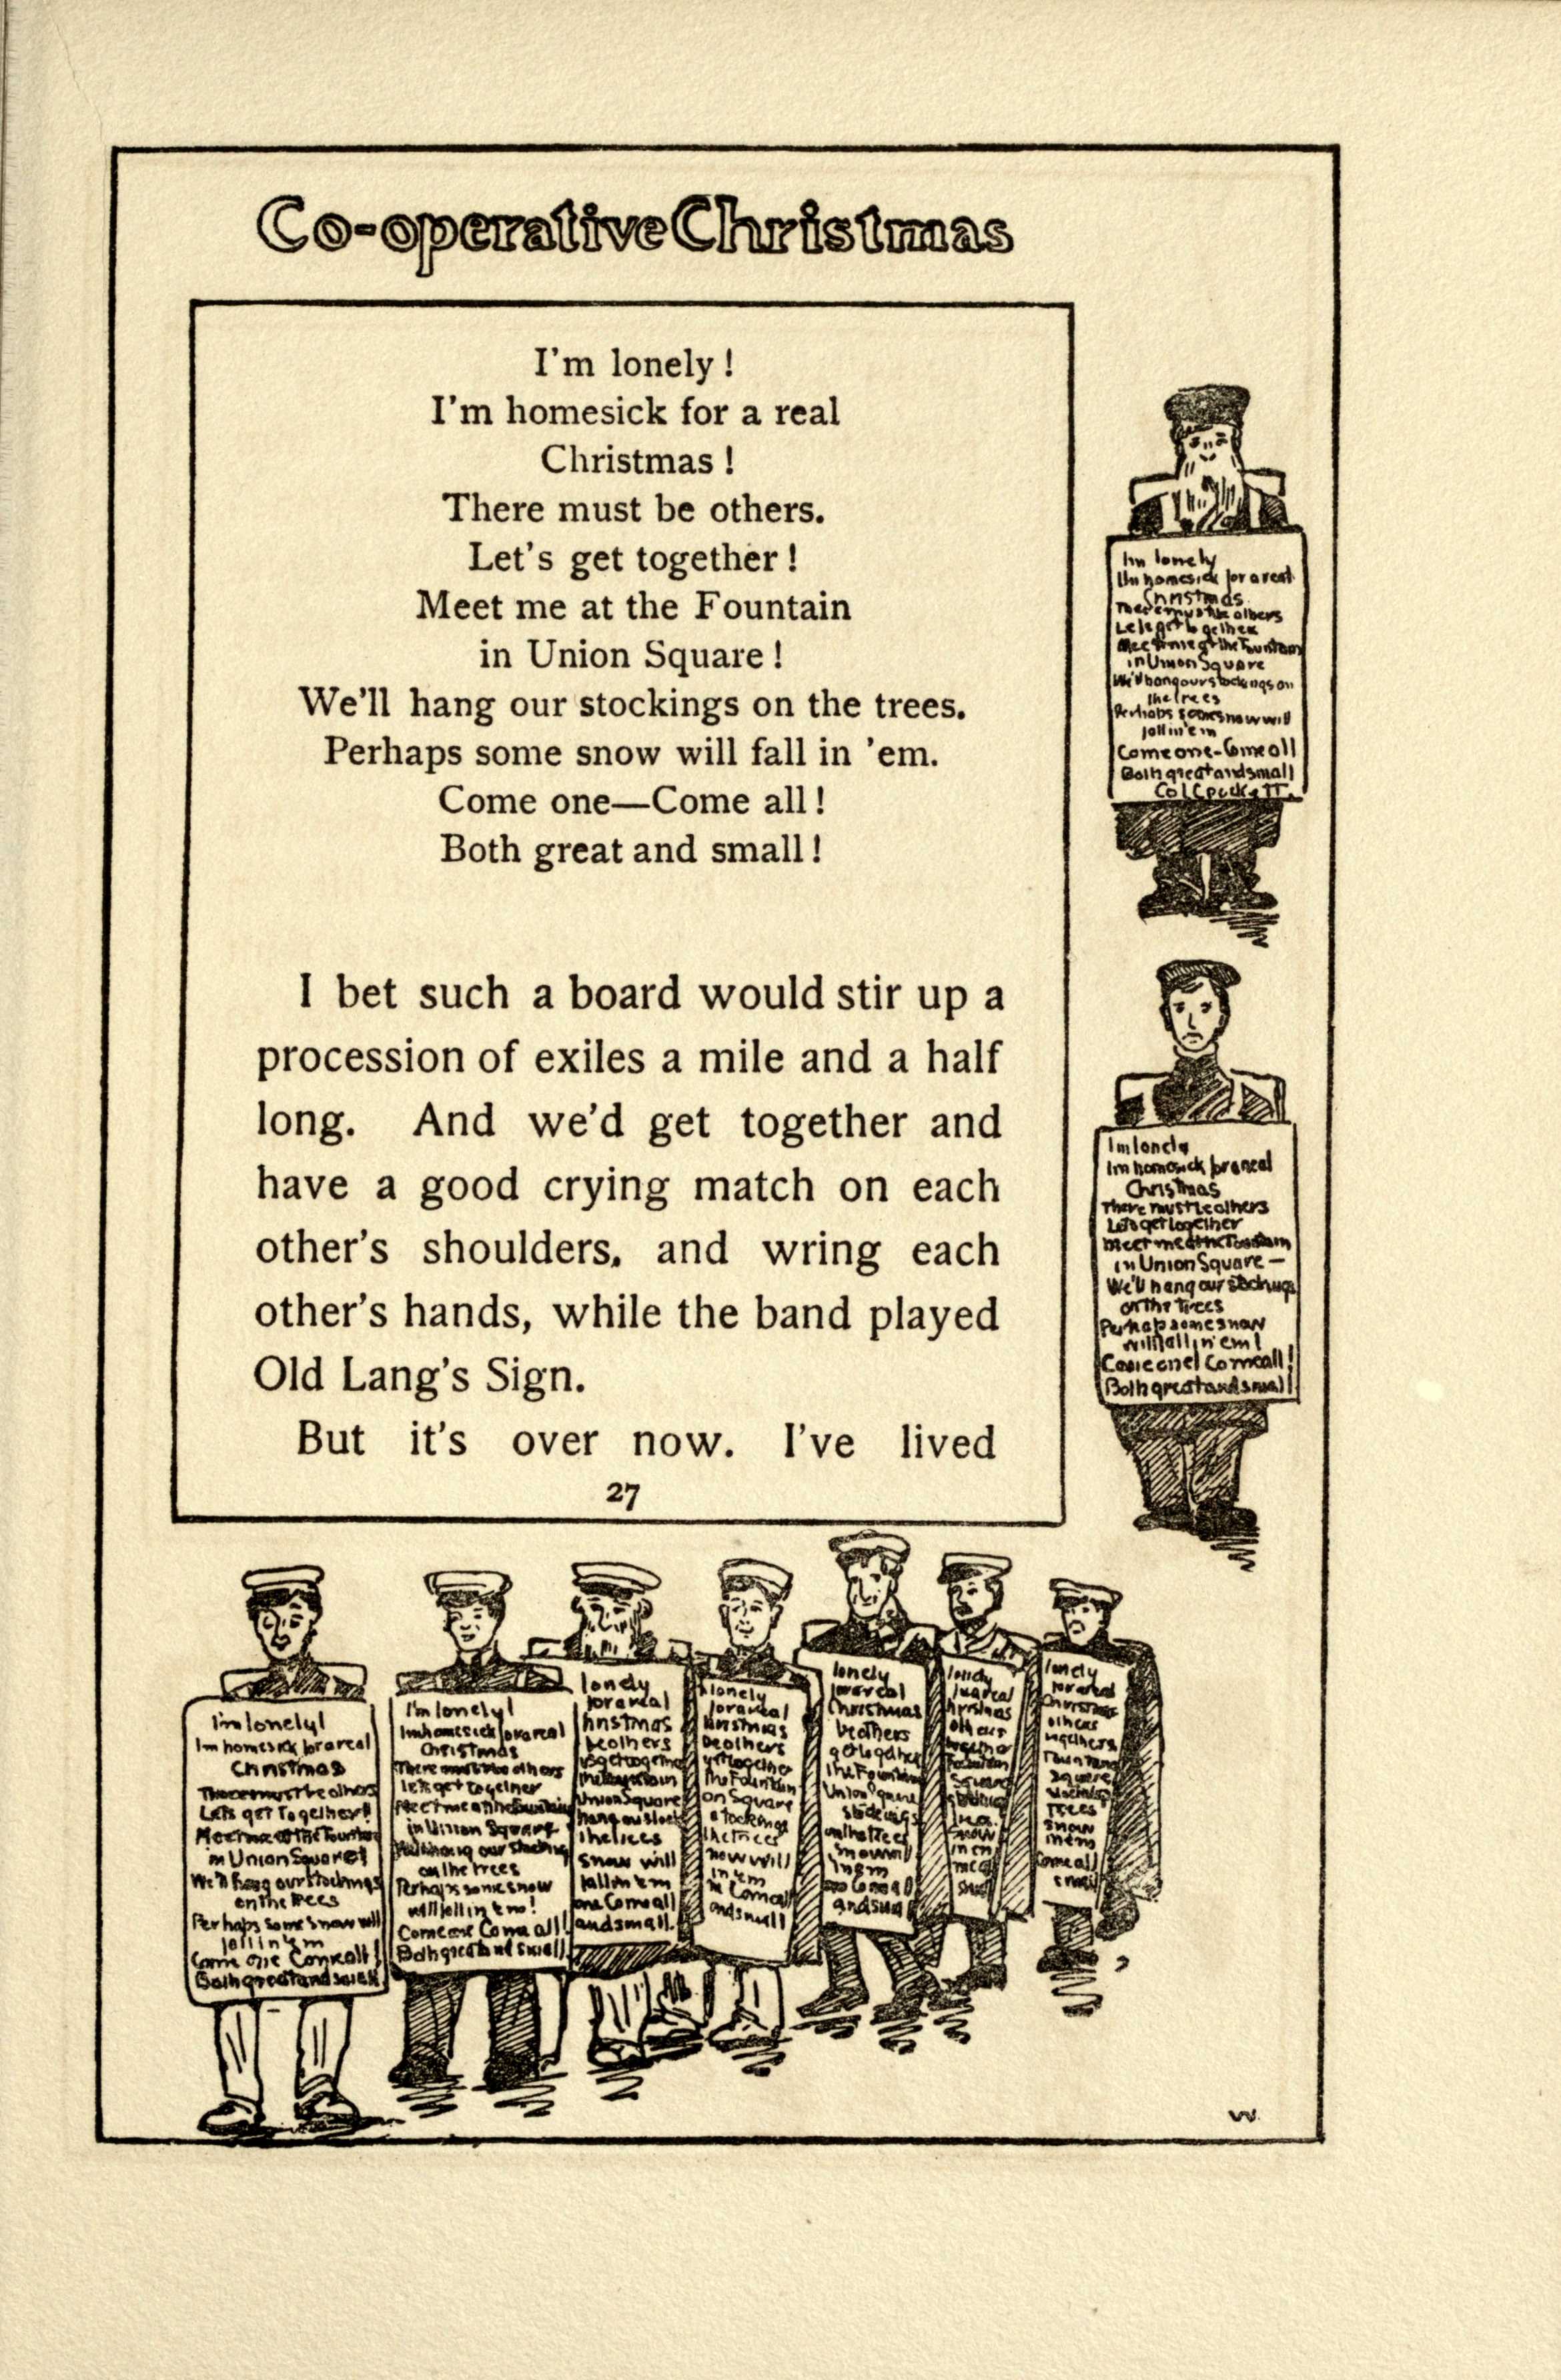 Co-operative Christmas
I'm lonely!
I'm homesick for a real
Christmas!
There must be others.
Let's get together!
Meet me at the Fountain
in Union Square!
We'll hang our stockings on the trees.
Perhaps some snow will fall in 'em.
Come one—Come all!
Both great and small!
I bet such a board would stir up a
procession of exiles a mile and a half
long. And we'd get together and
have a good crying match on each
other's shoulders, and wring each
other's hands, while the band played
Old Lang's Sign.
But it's over now. I've lived
27
Im lonely
Im homesick for a real
Christmas
There must be others
Lets get together
Meet me at the Fountain
in Union Square
We'll hang our stockings on
the trees
Perhaps some snow will
fall in 'em
Come one-Come all
Both great and small
Im lonely
Im homesick for a real
Christmas
There must be others
Lets get together
Meet me at the Fountain
in Union Square—
We'll hang our stockings
on the trees
Perhaps some snow
will fall in 'em!
Come one! Come all!
Both great and small!
I'm lonely!
Im homesick for a real
Christmas
There must be others
Lets get together!
Meet me at the Fountain
in Union Square!
We'll hang our stockings
on the trees
Perhaps some snow will
fall in 'em
Come one Come all!
Both great and small
I'm lonely!
Im homesick for a real
Christmas
There must be others
lets get together
Meet me at the Fountain
in Union Square
We'll hang our stockings
on the trees
Perhaps some snow
will fall in 'em!
Come one Come all!
Both great and small
lonely
for a real
hristmas
be others
Union Square
the trees
snow will
fall in 'em
one Come all
and small.
lonely
for a real
hristmas
be others
the Fountain
on Square
stockings
the trees
now will
in 'em
Come all
and small
lonely
for a real
Christmas
be others
get together
the Fountain
Union Square
stockings
on the trees
snow will
in em
Come all
and small
lonely
for a real
others
lonely
for a real
Christmas
others
Square
Trees
snow
Come all
small
W.